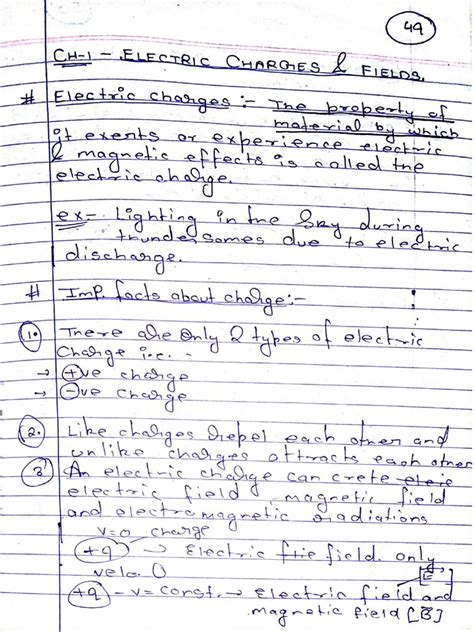 49
CH-1 - ELECTRIC CHARGES & FIELDS.
# Electric charges :- The property of
material by which
it exents or experience electric
& magnetic effects is called the
electric charge.
ex- Lighting in the sky during
thundersomes due to electric
discharge.
# Imp. facts about charge:-
1. There are only 2 types of electric
Charge i.e. -
→ +ve charge
→ -ve charge
2. Like charges repel each other and
unlike charges attracts each other
3. An electric charge can crete
electric field, magnetic field
and electromagnetic radiations
v=0 charge
+q → Electric field. only
velo. 0 [E]
+q - v = const. → electric field and
magnetic field [B]